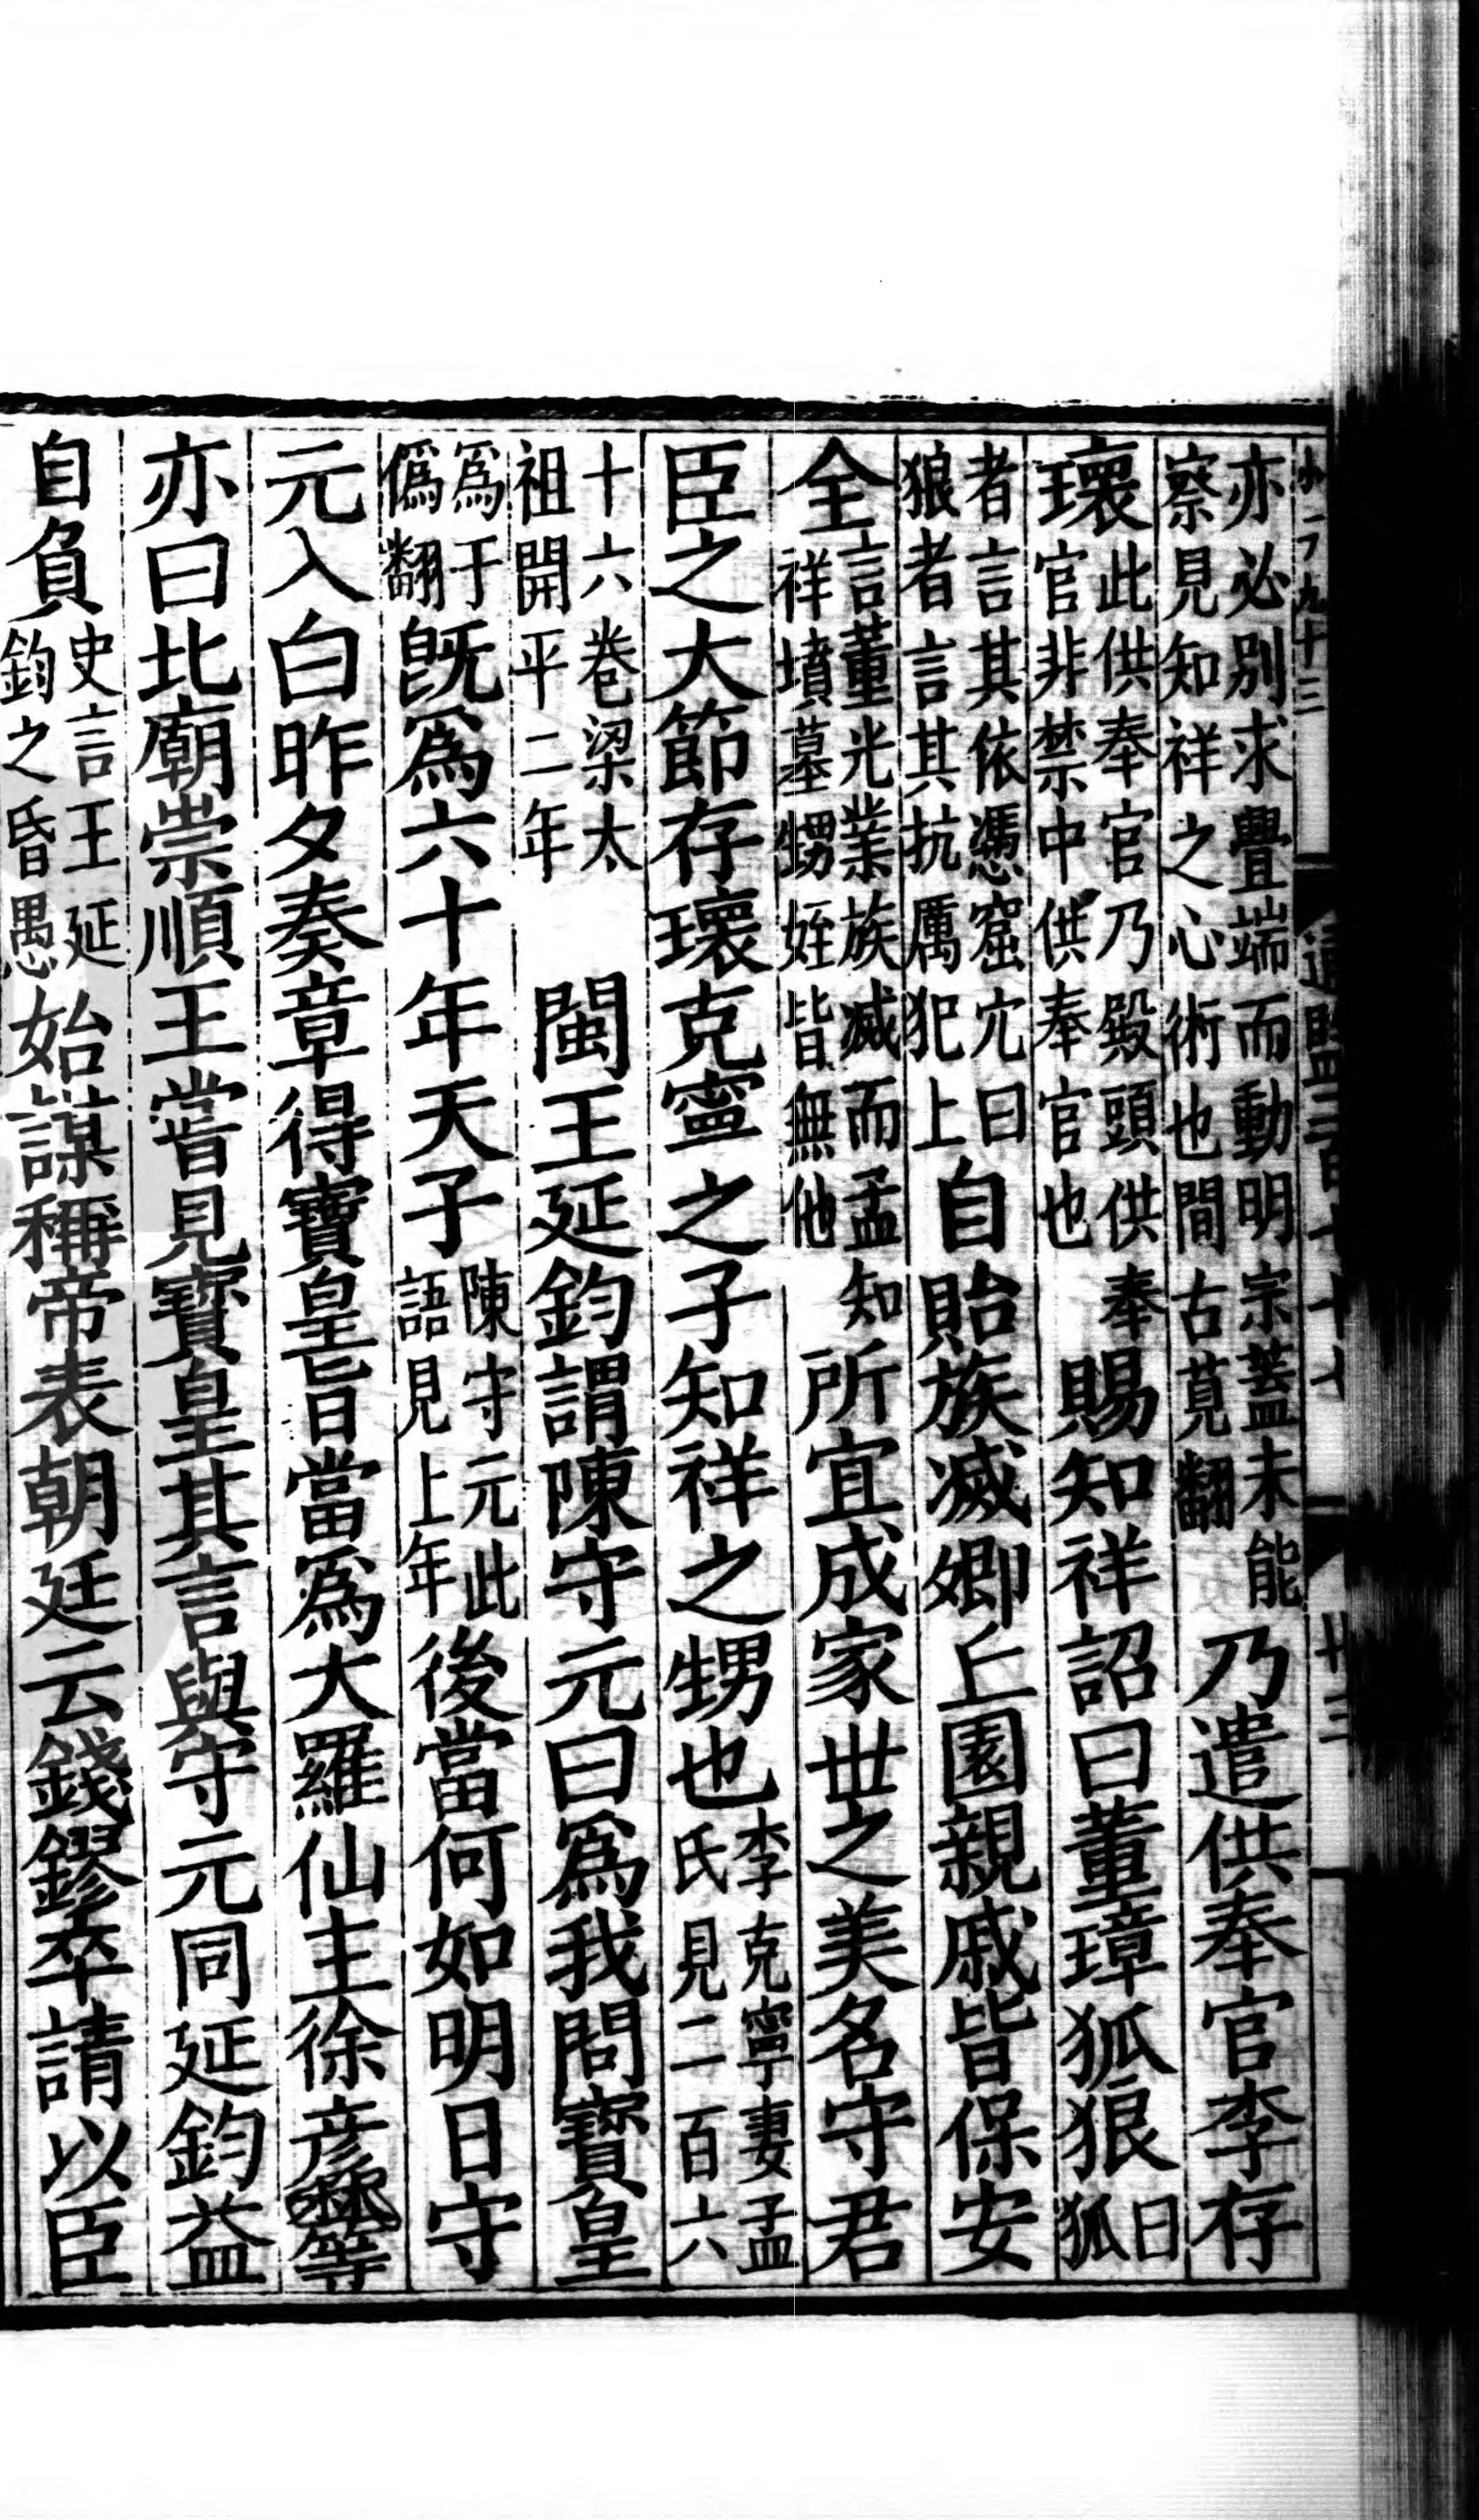 亦必別求釁端而動明宗蓋未能
察見知祥之心術也間古莧翻
乃遣供奉官李存
瓌
此供奉官乃殿頭供奉
官非禁中供奉官也
賜知祥詔曰董璋狐狼
曰狐
者言其依憑窟穴曰
狼者言其抗厲犯上
自貽族滅卿丘園親戚皆保安
全
言董光業族滅而孟知
祥墳墓甥姪皆無他
所宜成家世之美名守君
臣之大節存瓌克寧之子知祥之甥也
李克寧妻孟
氏見二百六
十六卷梁太
祖開平二年
閩王延鈞謂陳守元曰爲我問寶皇
爲于
僞翻
旣爲六十年天子
陳守元此
語見上年
後當何如明日守
元入白昨夕奏章得寶皇旨當爲大羅仙主徐彥等
亦曰北廟崇順王嘗見寶皇其言與守元同延鈞益
自負
史言王延
鈞之昏愚
始謀稱帝表朝廷云錢鏐卒請以臣